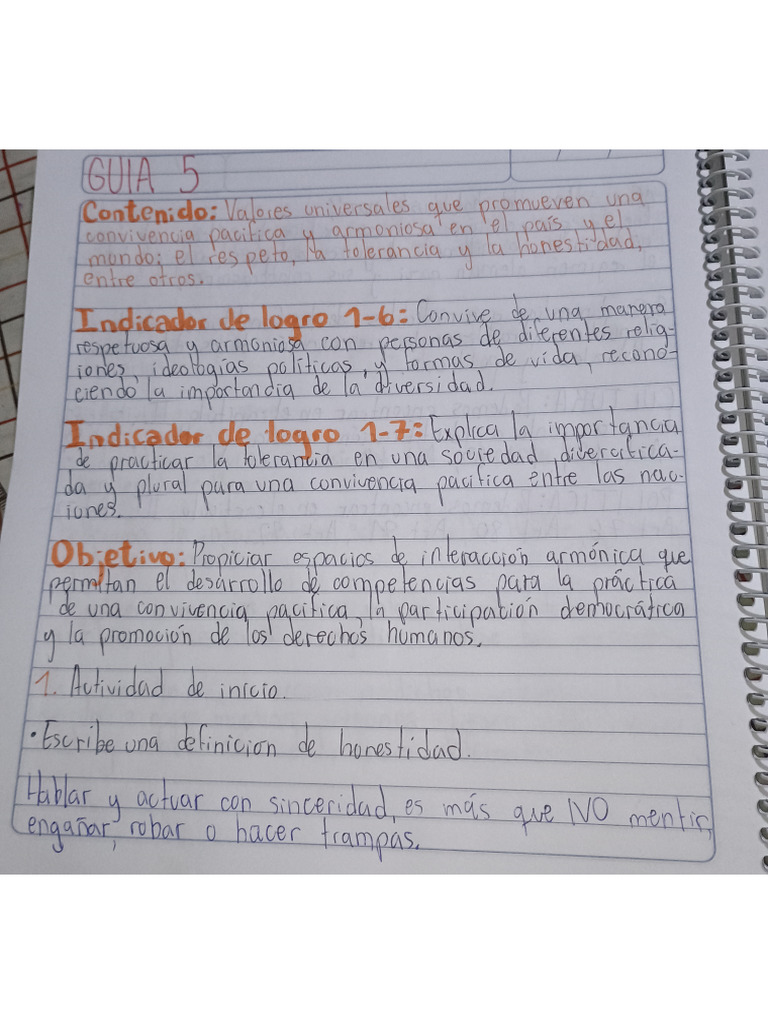 GUIA 5
Contenido: Valores universales que promueven una
convivencia pacifica y armoniosa en el país y el
mundo: el respeto, la tolerancia y la honestidad,
entre otros.
Indicador de logro 1-6: Convive de una manera
respetuosa y armoniosa con personas de diferentes relig-
iones, ideologías políticas, y formas de vida, recono-
ciendo la importandia de la diversidad.
Indicador de logro 1-7: Explica la importancia
de practicar la tolerancia en una sociedad divercifica-
da y plural para una convivencia pacifica entre las nac-
iones.
Objetivo: Propiciar espacios de interacción armónica que
permitan el desarrollo de competencias para la práctica
de una convivencia pacífica, la participación democrática
y la promoción de los derechos humanos.
1. Actividad de inicio.
• Escribe una definicion de honestidad.
Hablar y actuar con sinceridad, es más que NO mentir,
engañar, robar o hacer trampas.